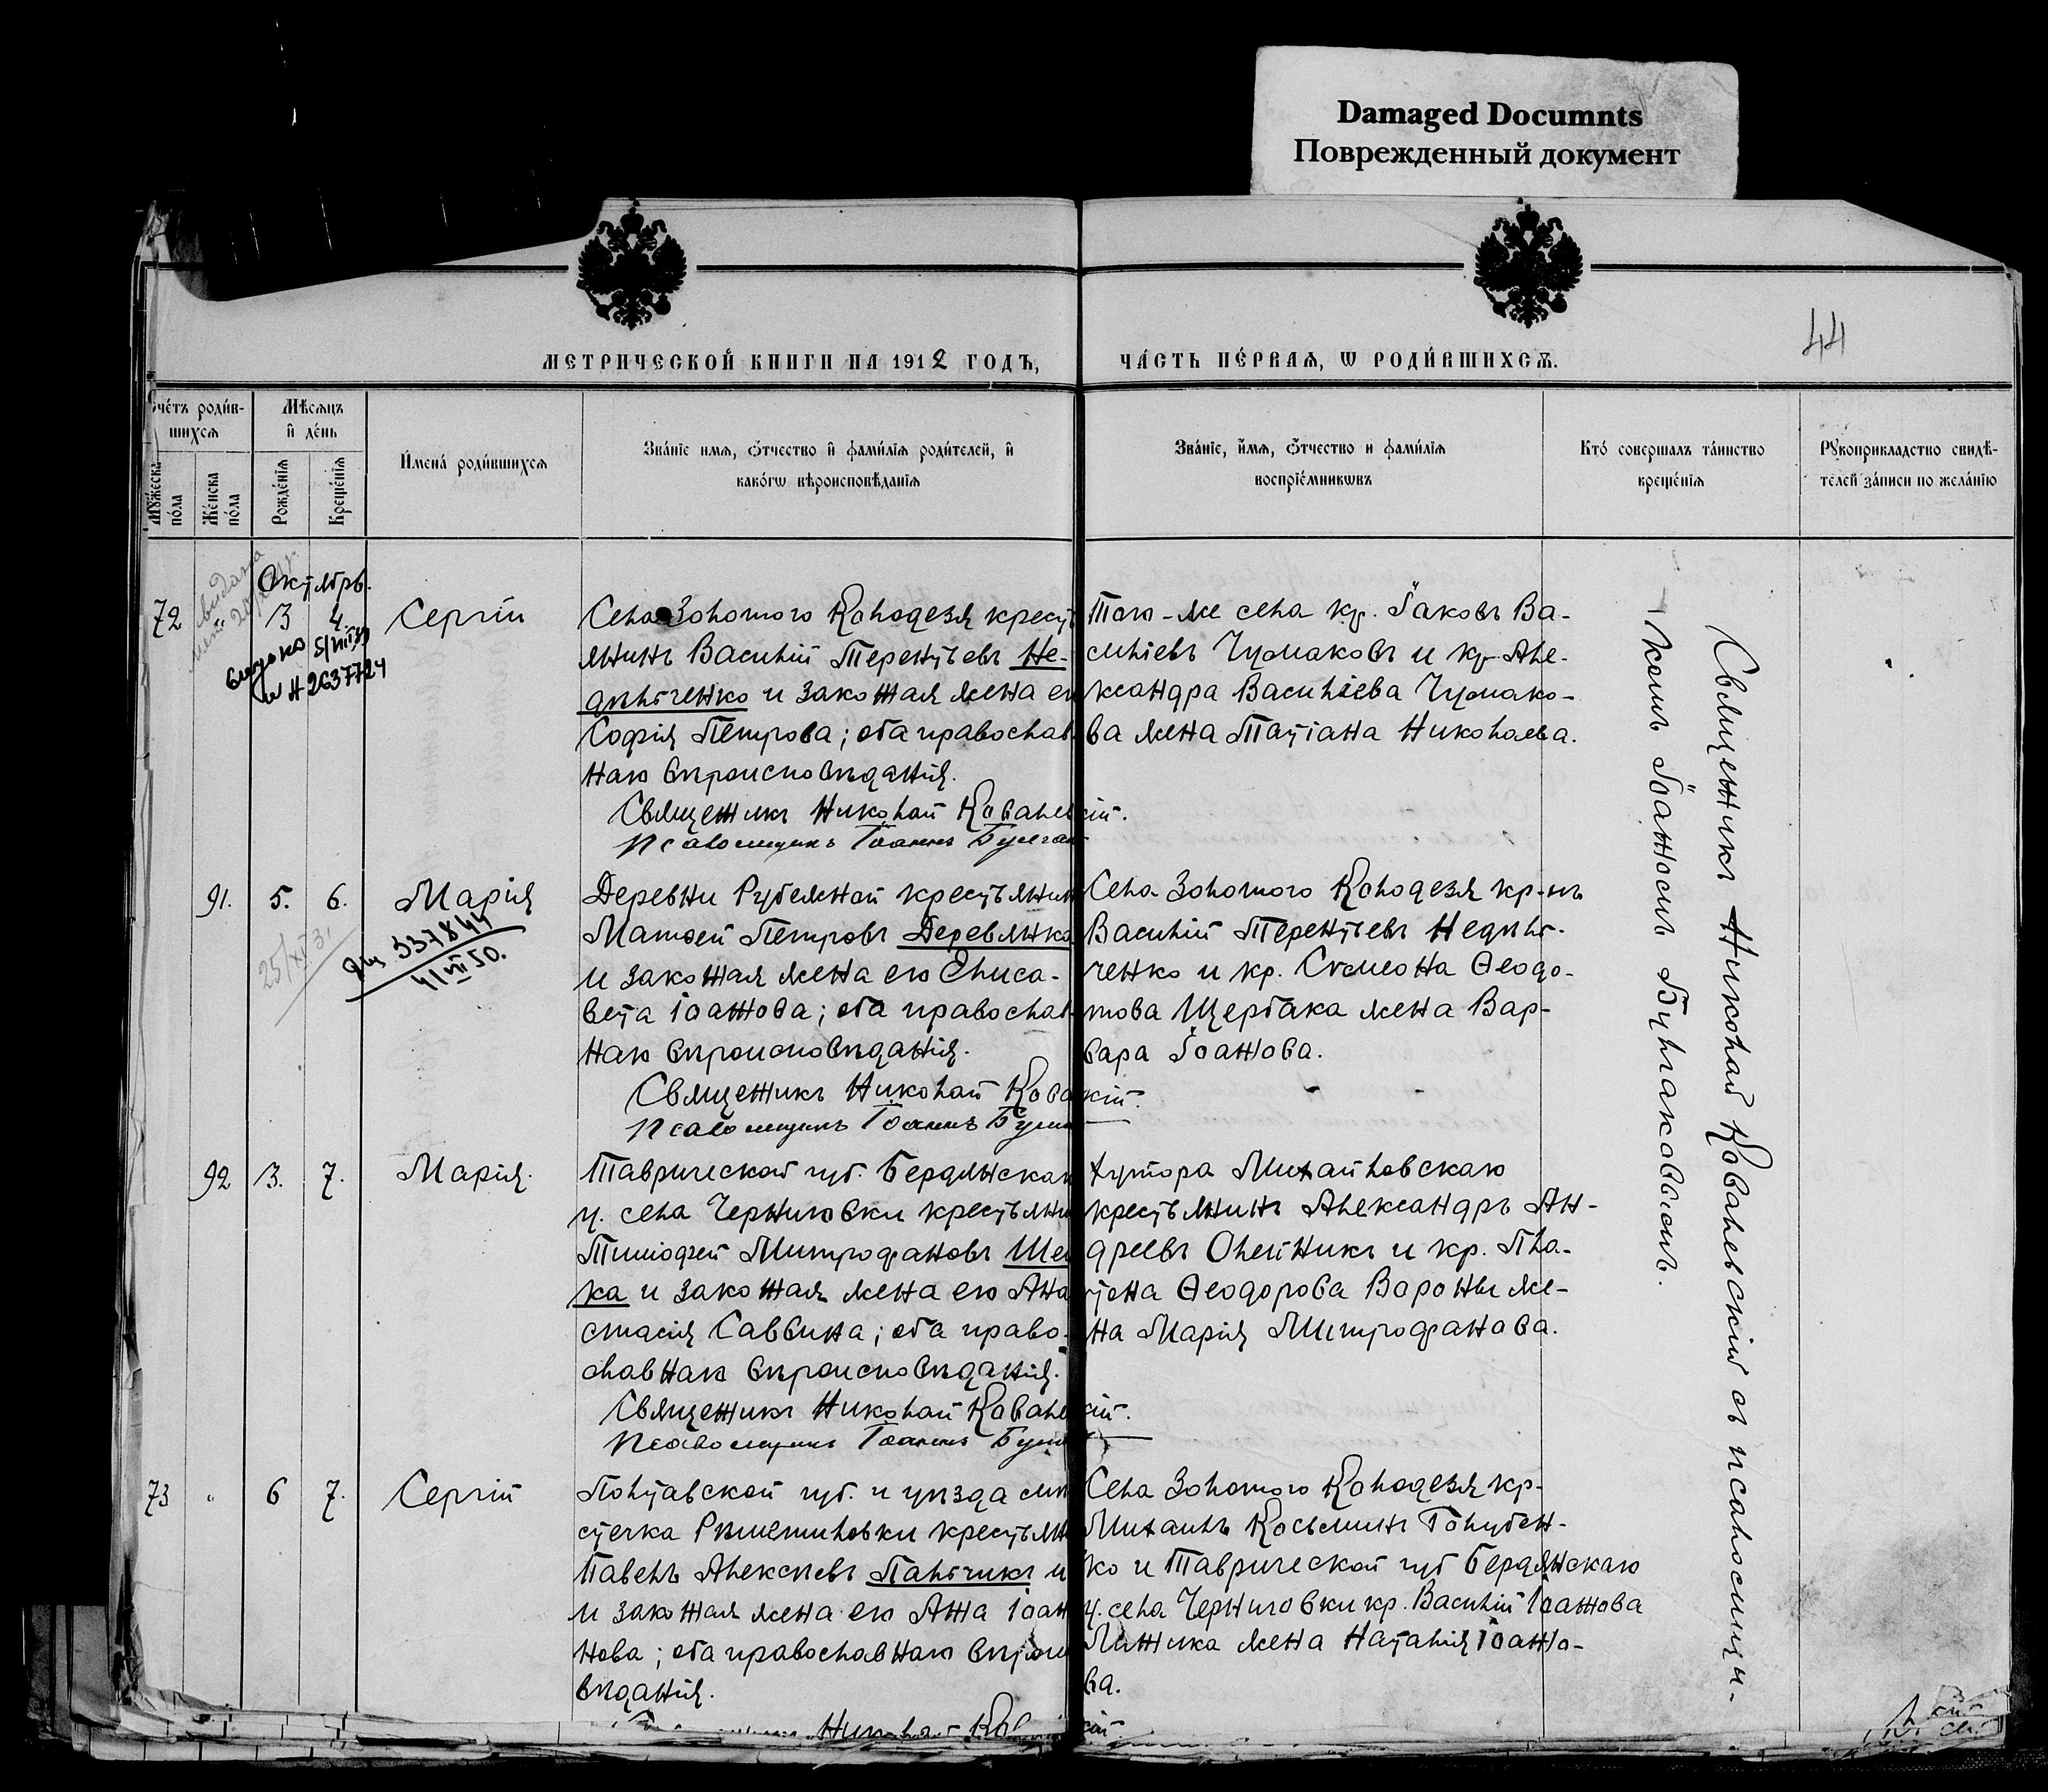 Damaged Documnts
Поврежденный документ
44
МЕТРИЧЕСКОЙ КНИГИ НА 1912 ГОДЪ,
ЧА́СТЬ ПЕ́РВАѦ, Ѡ РОДИ́ВШИХСѦ.
Счéтъ роди́в-
шихсѧ
Му́жеска по́ла
Же́нска по́ла
Мѣсѧцъ
и де́нь
Рожде́нїѧ
Креще́нїѧ
Имена́ роди́вшихсѧ
Зва́нїе имѧ, ѻ́тчество и фами́лїѧ роди́телей, и
како́гѡ вѣроисповѣ́данїѧ
Зва́нїе, и́мѧ, ѻ́тчество и фами́лїѧ
воспрїе́мникѡвъ
Кто́ совершалъ та́инство
креще́нїѧ
Рꙋкоприкладство свидѣ́-
телей за́писи по жела́нїю
Октябрь.
72 " 3 4. Сергій
5/VIII 39
№ 2637724
Села Золотого Колодезя крестья
янинъ Василій Терентьевъ Не-
дѣльченко и законная жена ег
Софія Петрова; оба православ
наго вѣроисповѣданія.
Священникъ Николай Ковалевскій.
Псаломщикъ Іоаннъ Булгак
Того-же села кр. Іаковъ Ва-
силіевъ Чумаковъ и кр. Але-
ксандра Василіева Чумако-
ва жена Татіана Николаева.
91. 5. 6. Марія
25/XI 31
337844
4/VII 50.
Деревни Рубежной крестьянин
Матѳей Петровъ Деревянко
и законная жена его Елиса-
вета Іоаннова; оба православ
наго вѣроисповѣданія.
Священникъ Николай Ковалкій.
Псаломщикъ Іоаннъ Булг
Села Золотого Колодезя кр-нъ
Василій Терентьевъ Недѣль-
ченко и кр. Симеона Ѳеодо-
това Щербака жена Вар-
вара Іоаннова.
92 3. 7. Марія.
Таврической губ. Бердянскаг
у. села Черниговки крестьяни
Тимоѳей Митрофановъ Ше
ка и законная жена его Ана
стасія Саввина; оба право-
славнаго вѣроисповѣданія.
Священникъ Николай Ковалевскій.
Псаломщикъ Іоаннъ Булг
Хутора Михайловскаго
крестьянинъ Александръ Ан-
дреевъ Олейникъ и кр. Пла-
тона Ѳеодорова Вороны же-
на Марія Митрофанова.
73 " 6 7. Сергій
Полтавской губ. и уѣзда мѣ
стечка Рѣшетиловки крестьян
Павелъ Алексѣевъ Пальчикъ и
и законная жена его Анна Іоан
нова; оба православнаго вѣроис
вѣданія.
Николай Ков кій
Села Золотого Колодезя кр-
Михаилъ Косьминъ Голубен-
ко и Таврической губ Бердянскаго
у. села Черниговки кр. Василій Іоаннова
Линника жена Наталія Іоанно-
ва.
Священникъ Николай Ковалевскій съ псаломщи-
комъ Іоанномъ Булгаковымъ.